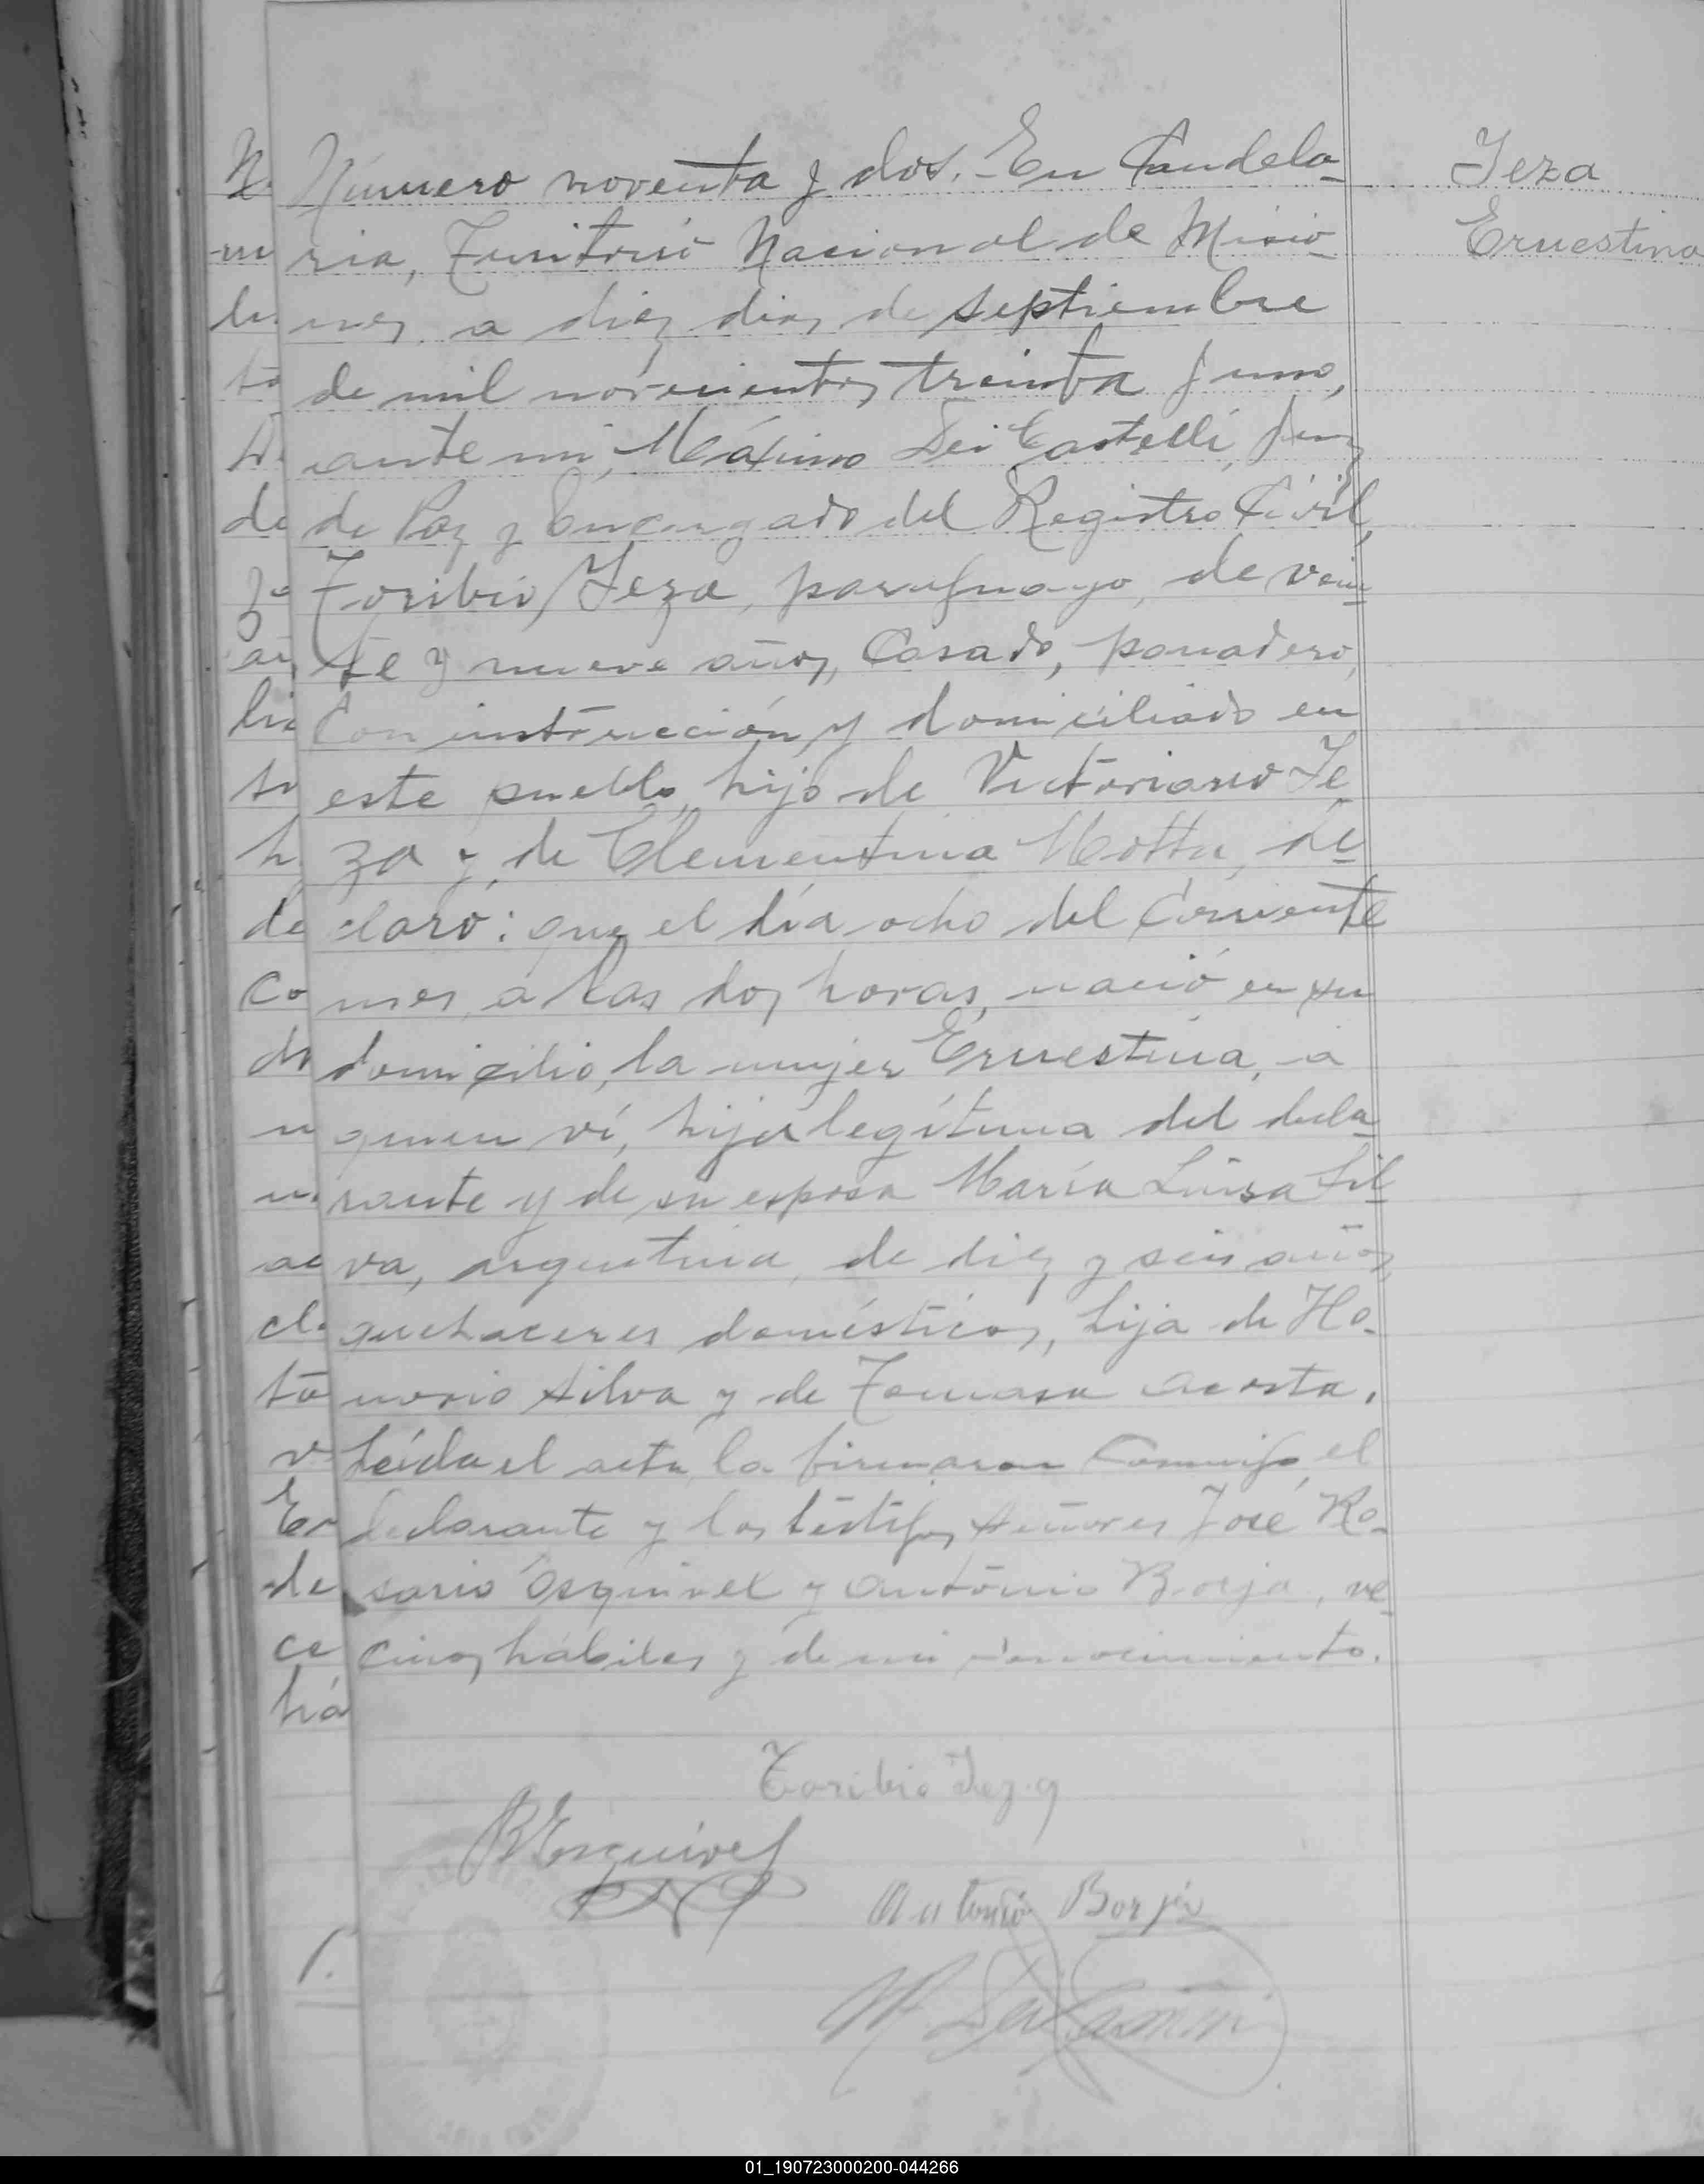 Número noventa y dos. En Candela-
ria, Territorio Nacional de Misio-
nes, a diez dias de septiembre
de mil novecientos treinta y uno,
ante mi, Máximo Dei Castelli, Juez
de Paz y Encargado del Registro Civil,
Toribio Jeza, paraguayo, de vein-
te y nueve años, Casado, panadero,
Con instrucción y domiciliado en
este pueblo, hijo de Victoriano Je-
za y de Clementina Motta, de-
claró: que el día ocho del Corriente
mes, a las dos horas, nació en su
domicilio, la mujer Ernestina, a
quien ví, hija legítima del decla-
rante y de su esposa María Luisa Sil-
va, argentina, de diez y seis años,
quehaceres domésticos, hija de Ho-
norio Silva y de Tomasa Acosta.
Leída el acta, la firmaron Conmigo, el
declarante y los testigos Señores José Ro-
sario Esquivel y Antonio Borja, ve-
cinos hábiles y de mi conocimiento.
Toribio Jeza
R Esquivel
Antonio Borja
M Dei Castelli
Jeza
Ernestina
01_190723000200-044266